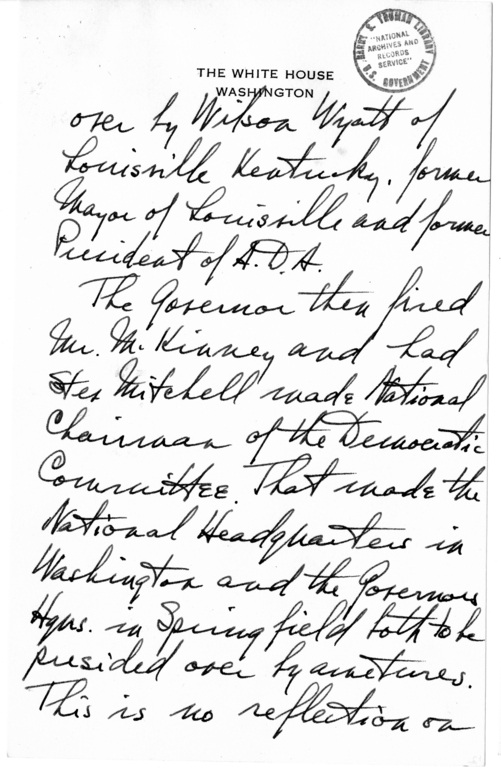 HARRY S. TRUMAN LIBRARY
"NATIONAL
ARCHIVES AND
RECORDS
SERVICE"
U.S. GOVERNMENT
THE WHITE HOUSE
WASHINGTON
over by Wilson Wyatt of
Louisville Kentucky, former
Mayor of Louisville and former
President of A.D.A.
The Governor then fired
Mr. McKinney and had
Stev Mitchell made National
Chairman of the Democratic
Committee. That made the
National Headquarters in
Washington and the Governors
Hqrs. in Springfield both to be
presided over by ametures.
This is no reflection on